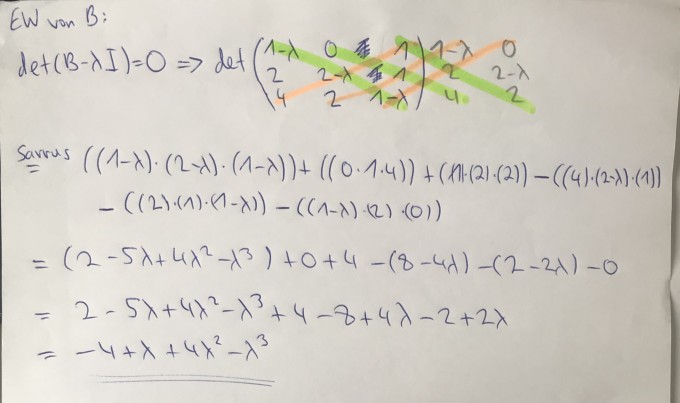 EW von B:
det(B-λI)=0 => det( 1-λ 0 1 ) 1-λ 0
2 2-λ 1 2 2-λ
4 2 1-λ 4 2
Sarrus ((1-λ)·(2-λ)·(1-λ)) + ((0·1·4)) + ((1)·(2)·(2)) - ((4)·(2-λ)·(1))
- ((2)·(1)·(1-λ)) - ((1-λ)·(2)·(0))
= (2 - 5λ + 4λ² - λ³) + 0 + 4 - (8 - 4λ) - (2 - 2λ) - 0
= 2 - 5λ + 4λ² - λ³ + 4 - 8 + 4λ - 2 + 2λ
= -4 + λ + 4λ² - λ³